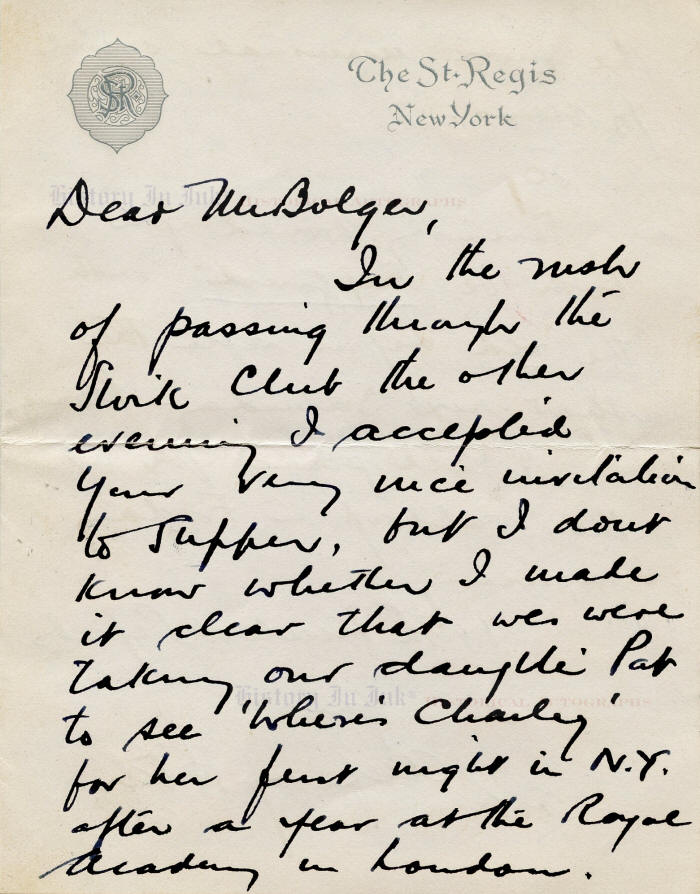 SR
The St. Regis
New York
History In Ink® HISTORICAL AUTOGRAPHS
Dear Mr Bolger,
In the rush
of passing through the
Stork Club the other
evening I accepted
your very nice invitation
to supper, but I dont
know whether I made
it clear that we were
taking our daughter Pat
History In Ink® HISTORICAL AUTOGRAPHS
to see 'Where's Charley'
for her first night in N.Y.
after a year at the Royal
Academy in London.